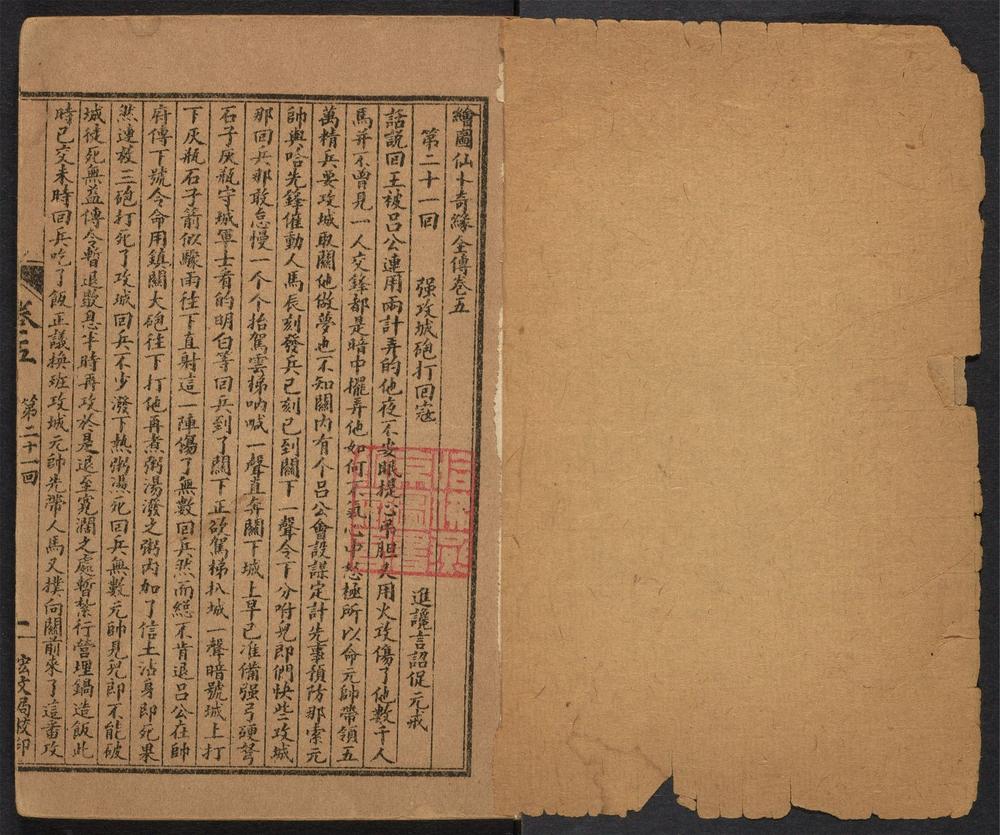 繪圖仙卜奇緣全傳卷五
第二十一回　强攻城砲打回寇　進讒言詔促元戎
話說回王被吕公連用兩計弄的他夜不安眠提心吊胆又用火攻傷了他數千人
馬并不曾見一人交鋒都是暗中擺弄他如何不氣心中怒極所以命元帥帶領五
萬精兵要攻城取關他做夢也不知關内有个吕公會設謀定計先事預防那索元
帥與哈先鋒催動人馬辰刻發兵已刻已到關下一聲令下分咐兒郎們快些攻城
那回兵那敢怠慢一个个抬駕雲梯吶喊一聲直奔關下城上早已准備强弓硬弩
石子灰瓶守城軍士看的明白等回兵到了關下正欲駕梯扒城一聲暗號城上打
下灰瓶石子箭似驟雨往下直射這一陣傷了無數回兵然而總不肯退吕公在帥
府傳下號令命用鎮關大砲往下打他再煮粥湯潑之粥内加了信土沾身即死果
然連放三砲打死了攻城回兵不少潑下熱粥燙死回兵無數元帥見兒郎不能破
城徒死無益傳令暫退歇息半時再攻於是退至寬濶之處暫紮行營埋鍋造飯此
時已交未時回兵吃了飯正議換班攻城元帥先帶人馬又撲向關前來了這番攻
卷五
第二十一回
一
宏文局校印